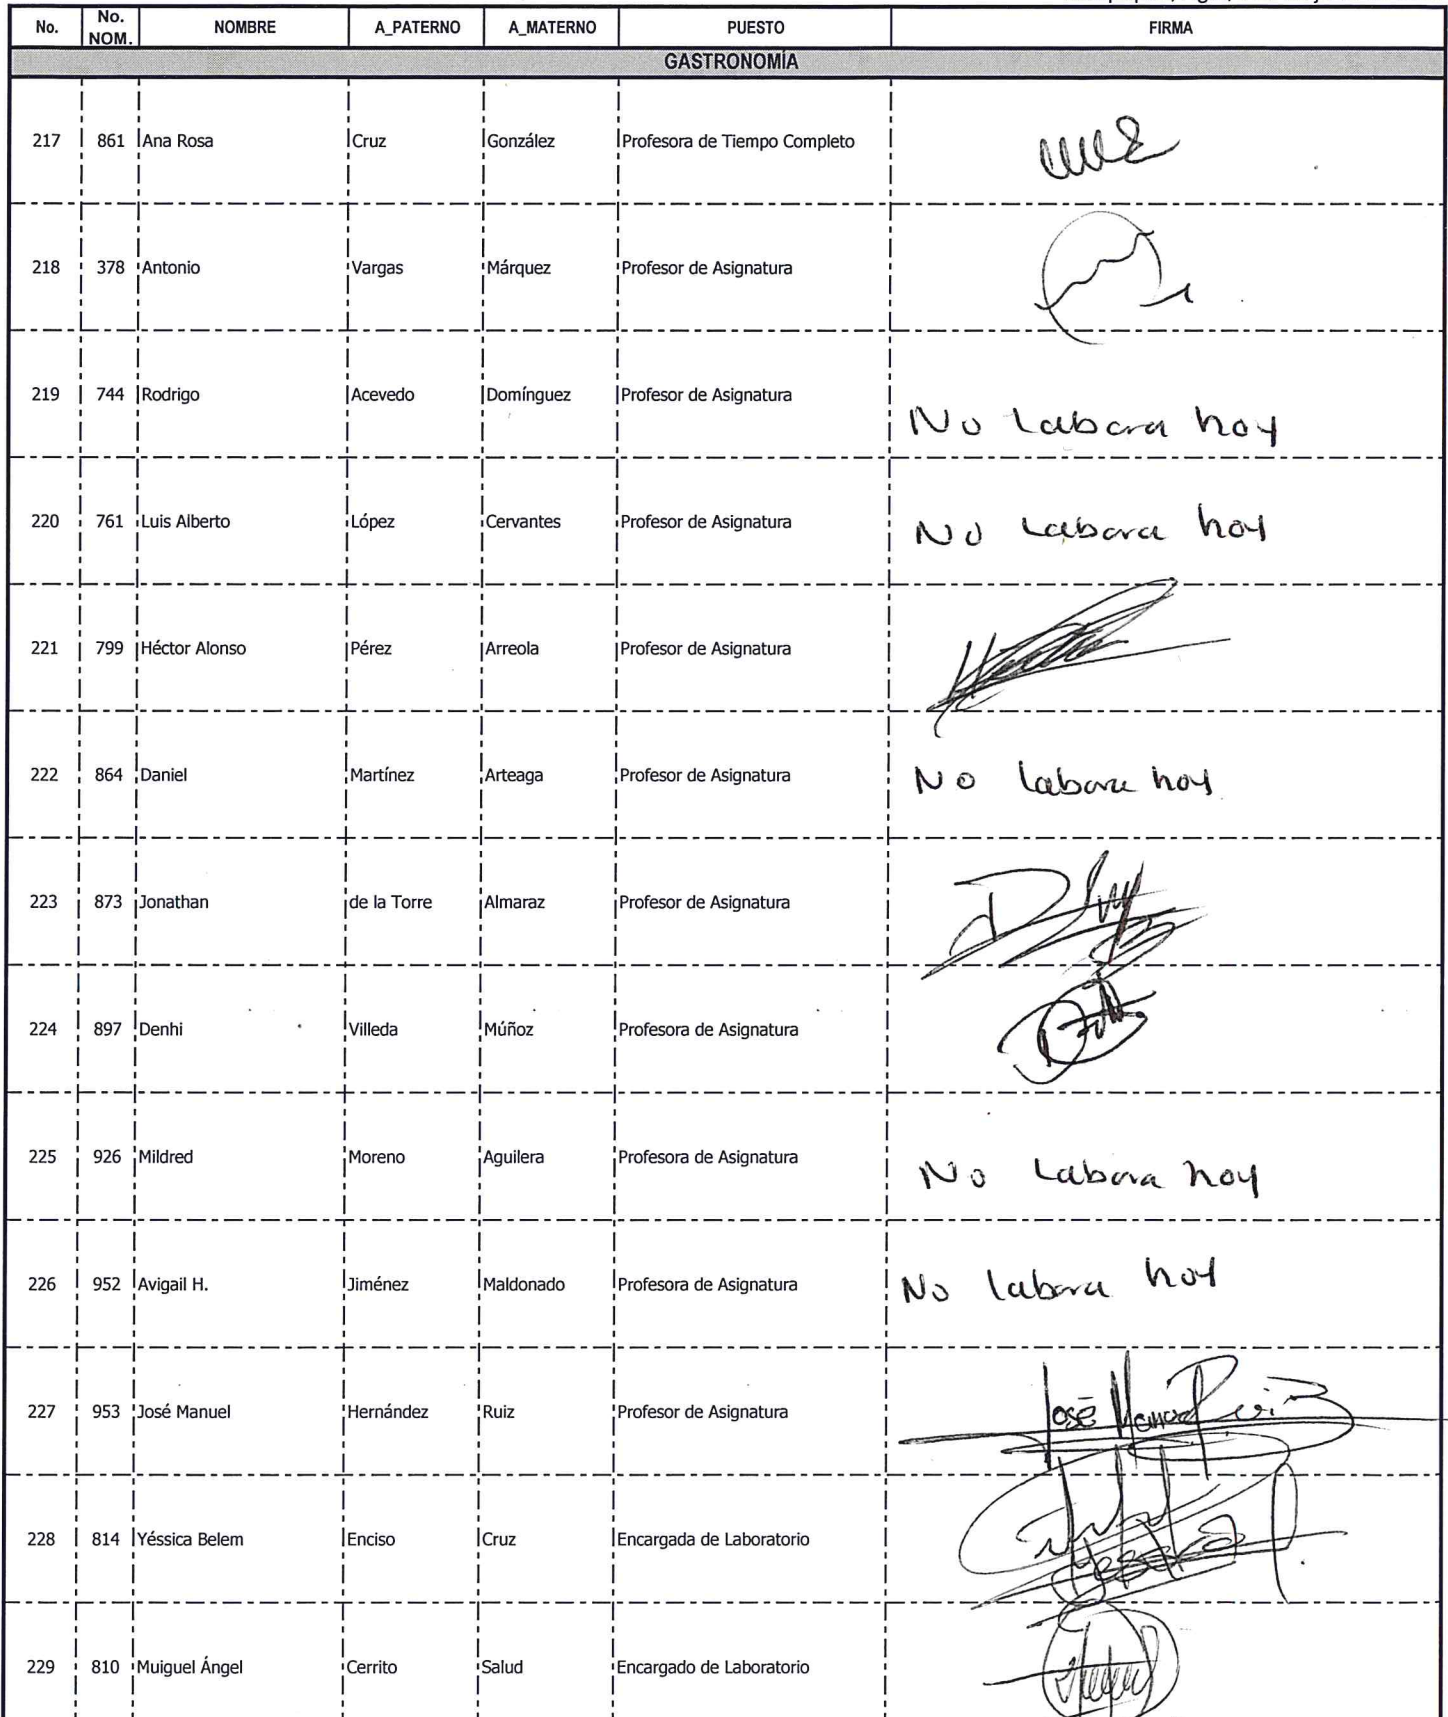 No. No. NOM. NOMBRE A_PATERNO A_MATERNO PUESTO FIRMA
GASTRONOMÍA
217 861 Ana Rosa Cruz González Profesora de Tiempo Completo
218 378 Antonio Vargas Márquez Profesor de Asignatura
219 744 Rodrigo Acevedo Domínguez Profesor de Asignatura No labora hoy
220 761 Luis Alberto López Cervantes Profesor de Asignatura No labora hoy
221 799 Héctor Alonso Pérez Arreola Profesor de Asignatura
222 864 Daniel Martínez Arteaga Profesor de Asignatura No labora hoy
223 873 Jonathan de la Torre Almaraz Profesor de Asignatura
224 897 Denhi Villeda Múñoz Profesora de Asignatura
225 926 Mildred Moreno Aguilera Profesora de Asignatura No labora hoy
226 952 Avigail H. Jiménez Maldonado Profesora de Asignatura No labora hoy
227 953 José Manuel Hernández Ruiz Profesor de Asignatura José Manuel Ruiz
228 814 Yéssica Belem Enciso Cruz Encargada de Laboratorio
229 810 Muiguel Ángel Cerrito Salud Encargado de Laboratorio